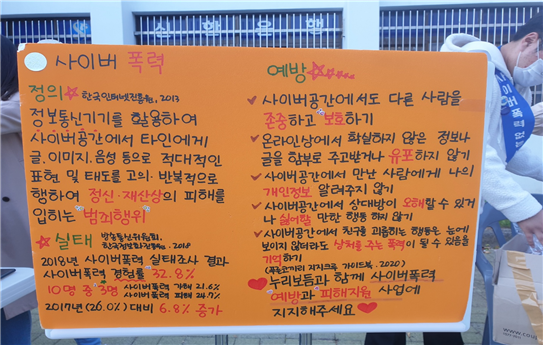 사이버 폭력
정의 한국인터넷진흥원, 2013
정보통신기기를 활용하여
사이버공간에서 타인에게
글, 이미지, 음성 등으로 적대적인
표현 및 태도를 고의·반복적으로
행하여 정신·재산상의 피해를
입히는 "범죄행위"
실태 방송통신위원회,
한국정보화진흥원, 2018
2018년 사이버폭력 실태조사 결과
사이버폭력 경험률 32.8%
10명 중 3명 사이버폭력 가해 21.6%
사이버폭력 피해 24.7%
2017년(26.0%) 대비 6.8% 증가
예방
사이버공간에서도 다른 사람을
존중하고 보호하기
온라인상에서 확실하지 않은 정보나
글을 함부로 주고받거나 유포하지 않기
사이버공간에서 만난 사람에게 나의
개인정보 알려주지 않기
사이버공간에서 상대방이 오해할 수 있거
나 싫어할 만한 행동 하지 않기
사이버공간에서 친구를 괴롭히는 행동은 눈에
보이지 않더라도 상처를 주는 폭력이 될 수 있음을
기억하기
(푸른코끼리 지지크루 가이드북, 2020)
누리보듬과 함께 사이버폭력
예방과 피해지원 사업에
지지해주세요